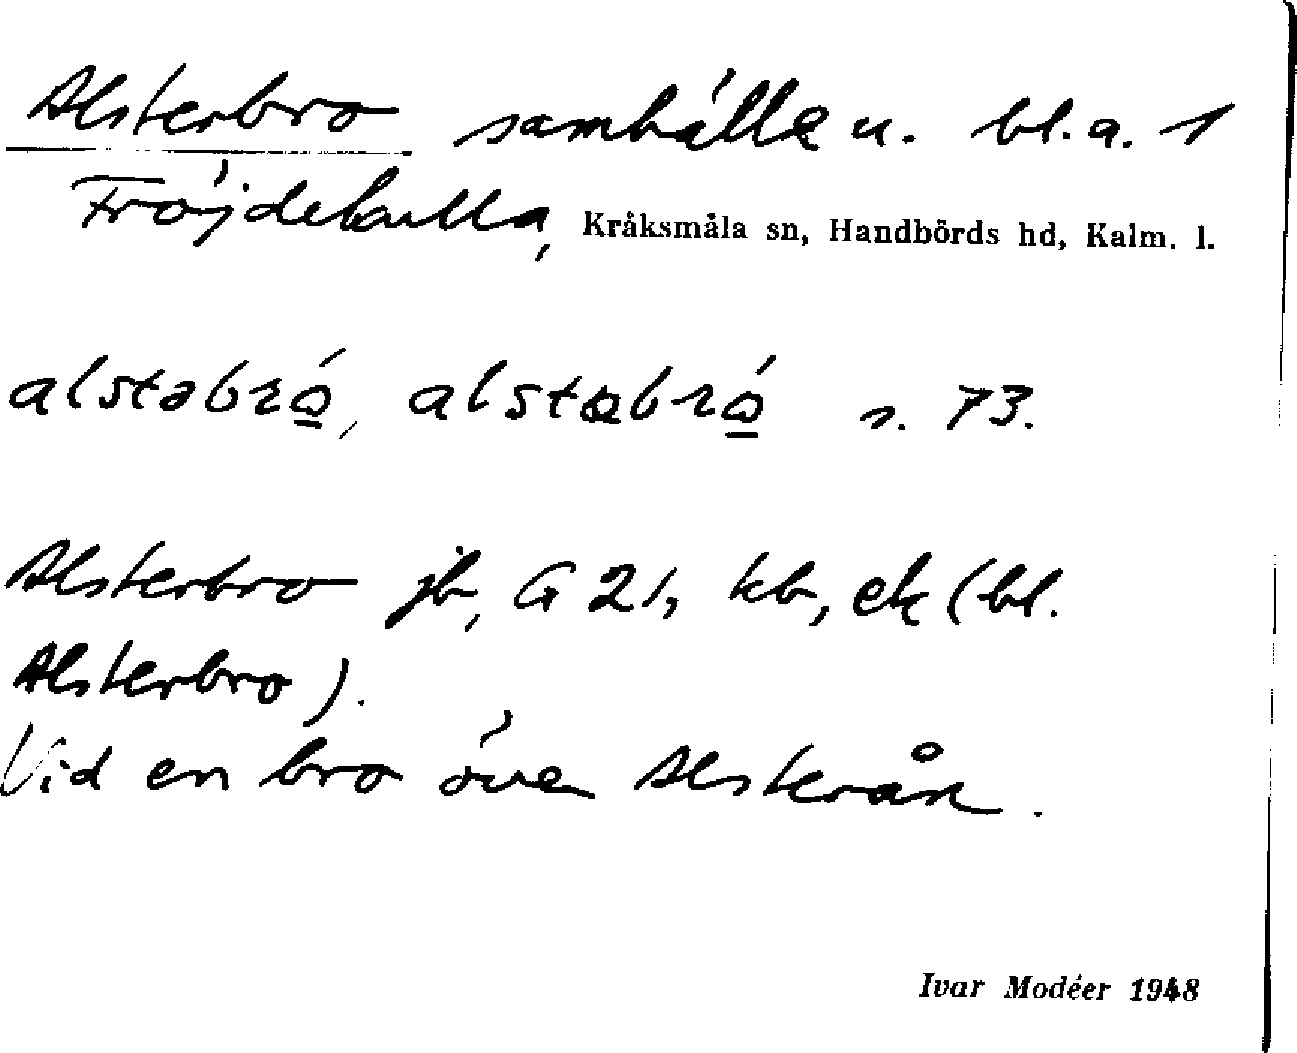 Alsterbro samhälle u. bl. a. 1
Fröjdekulla, Kråksmåla sn, Handbörds hd, Kalm. l.
alstəbró̲, alstəbró̲ s. 73.
Alsterbro jb, G 21, kb, ek (bl.
Alsterbro).
Vid en bro över Alsterån.
Ivar Modéer 1948